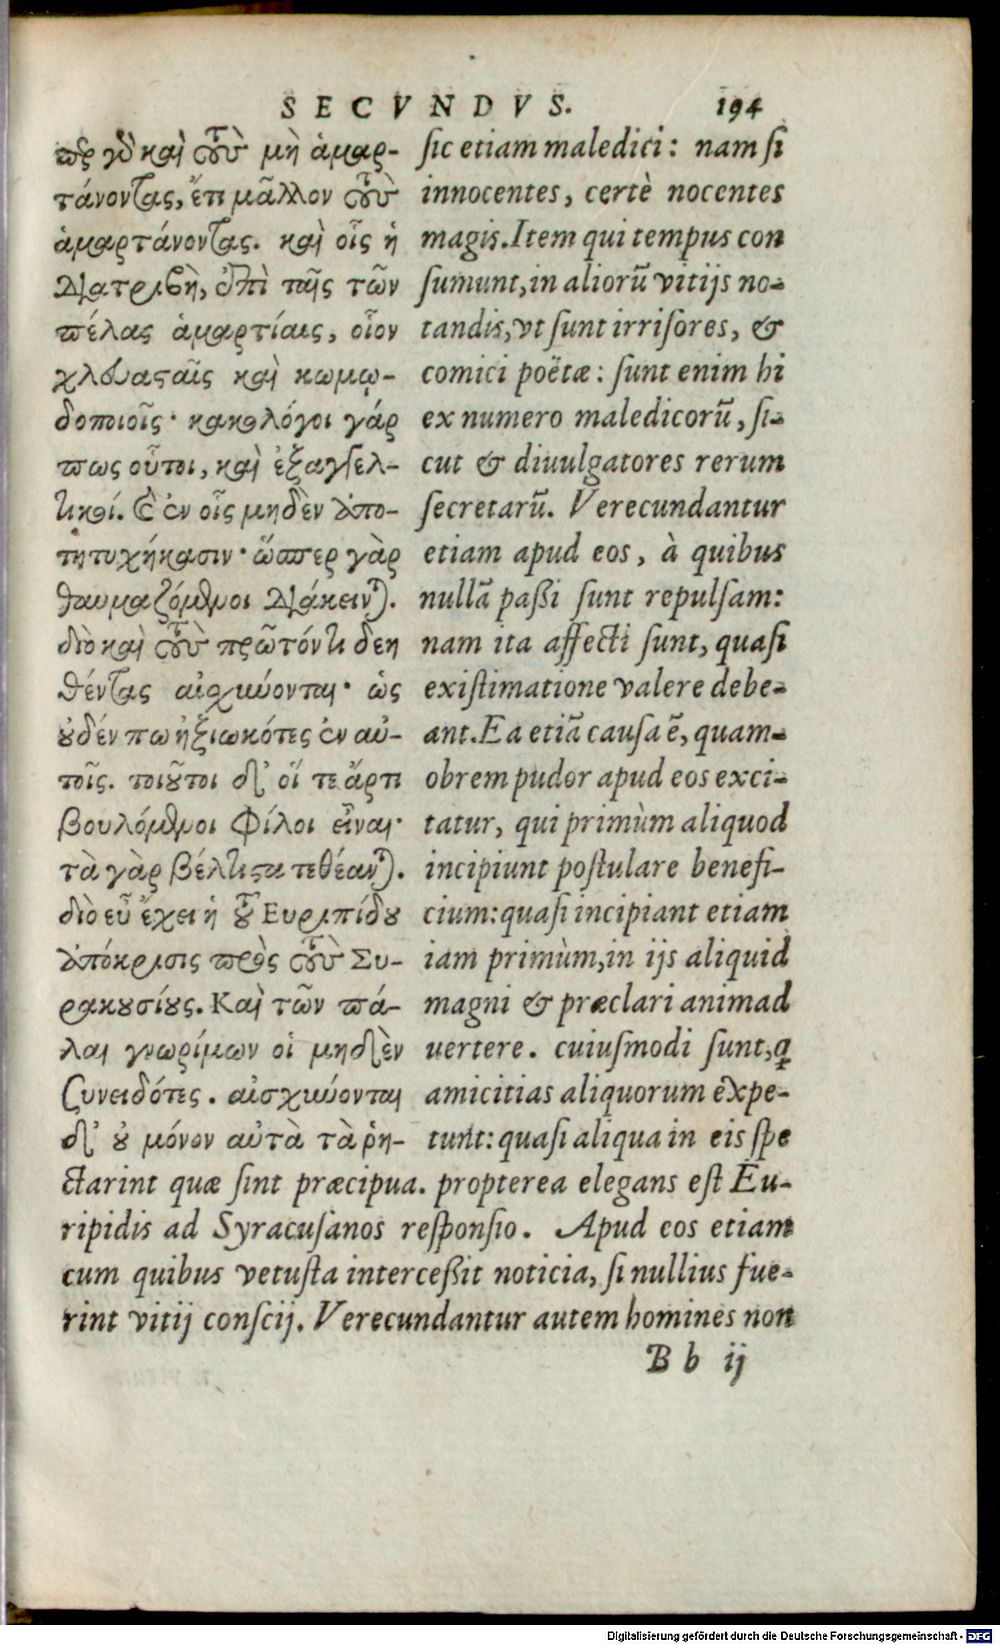 SECVNDVS. 194
πρ γὸ καὶ τοὺς μὴ ἁμαρ-
τάνοντας, ἔτι μᾶλλον τοὺς
ἁμαρτάνοντας. καὶ οἷς ἡ
διατριβὴ, ἐπὶ ταῖς τῶν
πέλας ἁμαρτίαις, οἷον
χλευασταῖς καὶ κωμῳ-
δοποιοῖς· κακολόγοι γάρ
πως οὗτοι, καὶ ἐξαγγελ-
τικοί. καὶ ἐν οἷς μηδὲν ἀπο-
τητυχήκασιν· ὥσπερ γὰρ
θαυμαζόμενοι διάκεινται.
διὸ καὶ τοὺς πρῶτόν τι δεη
θέντας αἰσχύνονται· ὡς
οὐδέν πω ἠξιωκότες ἐν αὐ-
τοῖς. τοιοῦτοι δ' οἵ τε ἄρτι
βουλόμενοι φίλοι εἶναι·
τὰ γὰρ βέλτιστα τεθέανται.
διὸ εὖ ἔχει ἡ τοῦ Ευριπίδου
ἀπόκρισις πρὸς τοὺς Συ-
ρακουσίους. Καὶ τῶν πά-
λαι γνωρίμων οἱ μηδὲν
ζυνειδότες. αἰσχύνονται
δ' οὐ μόνον αὐτὰ τὰ ῥη-
sic etiam maledici: nam si
innocentes, certè nocentes
magis. Item qui tempus con
sumunt, in aliorũ vitijs no-
tandis, vt sunt irrisores, &
comici poëtæ: sunt enim hi
ex numero maledicorũ, si-
cut & diuulgatores rerum
secretarũ. Verecundantur
etiam apud eos, à quibus
nullã paßi sunt repulsam:
nam ita affecti sunt, quasi
existimatione valere debe-
ant. Ea etiã causa ẽ, quam-
obrem pudor apud eos exci-
tatur, qui primùm aliquod
incipiunt postulare benefi-
cium: quasi incipiant etiam
iam primùm, in ijs aliquid
magni & præclari animad
uertere. cuiusmodi sunt, q
amicitias aliquorum expe-
tunt: quasi aliqua in eis spe
ctarint quæ sint præcipua. propterea elegans est Eu-
ripidis ad Syracusanos responsio. Apud eos etiam
cum quibus vetusta interceßit noticia, si nullius fue-
rint vitij conscij. Verecundantur autem homines non
B b ij
Digitalisierung gefördert durch die Deutsche Forschungsgemeinschaft - DFG